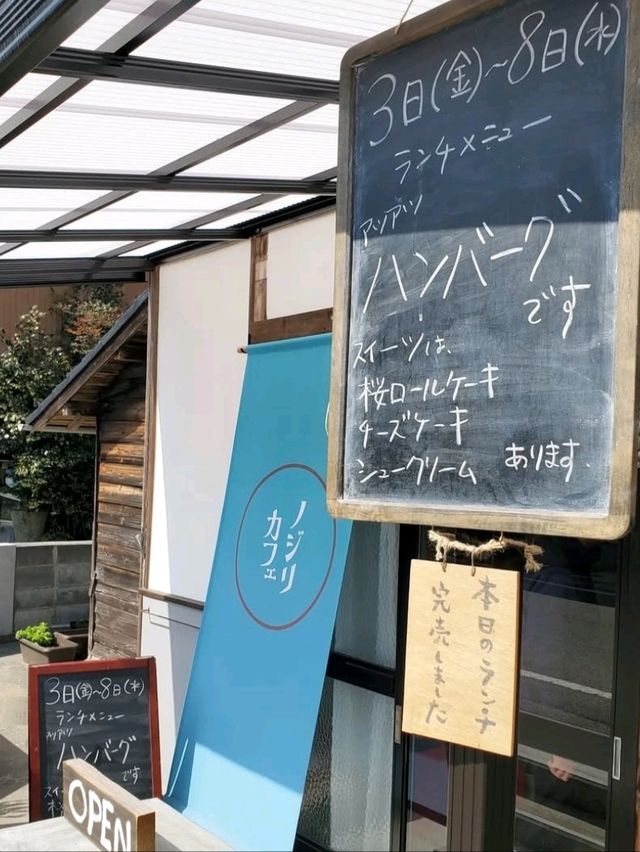 3日(金)~8日(水)
ランチメニュー
アツアツ
ハンバーグ
です
スイーツは、
桜ロールケーキ
チーズケーキ
シュークリーム あります.
ノジリ
カフェ
本日のランチ
完売しました
3日(金)~8日(水)
ランチメニュー
アツアツ
ハンバーグ
です
OPEN